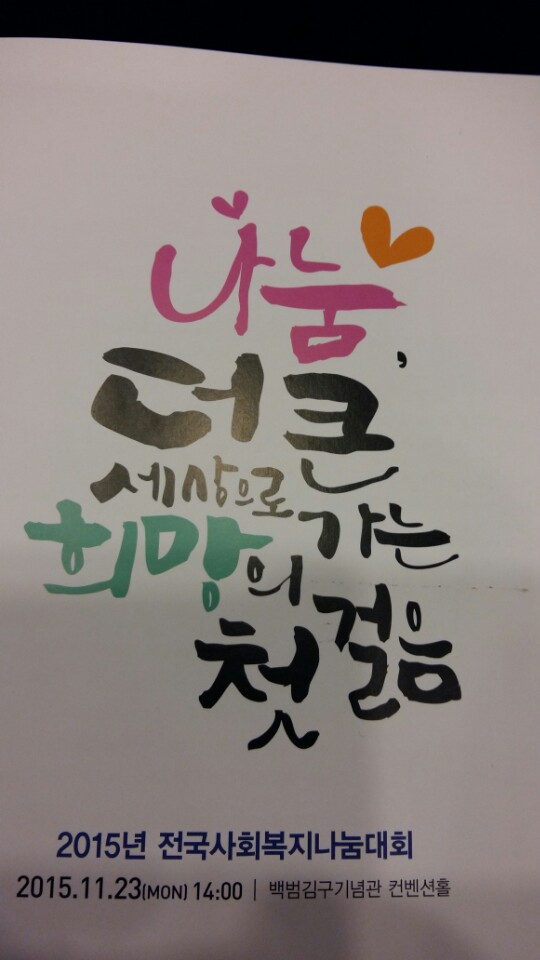 나눔,
더 큰
세상으로
가는
희망의
첫 걸음
2015년 전국사회복지나눔대회
2015.11.23(MON) 14:00 | 백범김구기념관 컨벤션홀